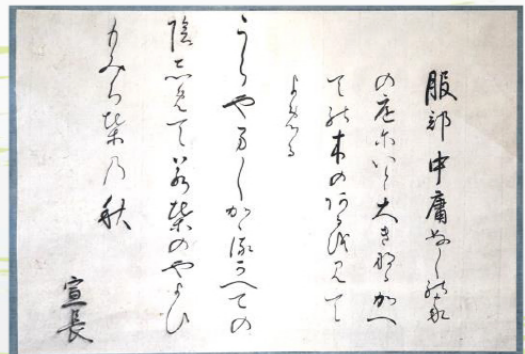 服部中庸ぬしの家
の庭にいと大きなるかへ
ての木のあるを見て
よめる
うらやましかゝるかへての
陰しめて若葉のやよひ
もみち葉の秋
宣長